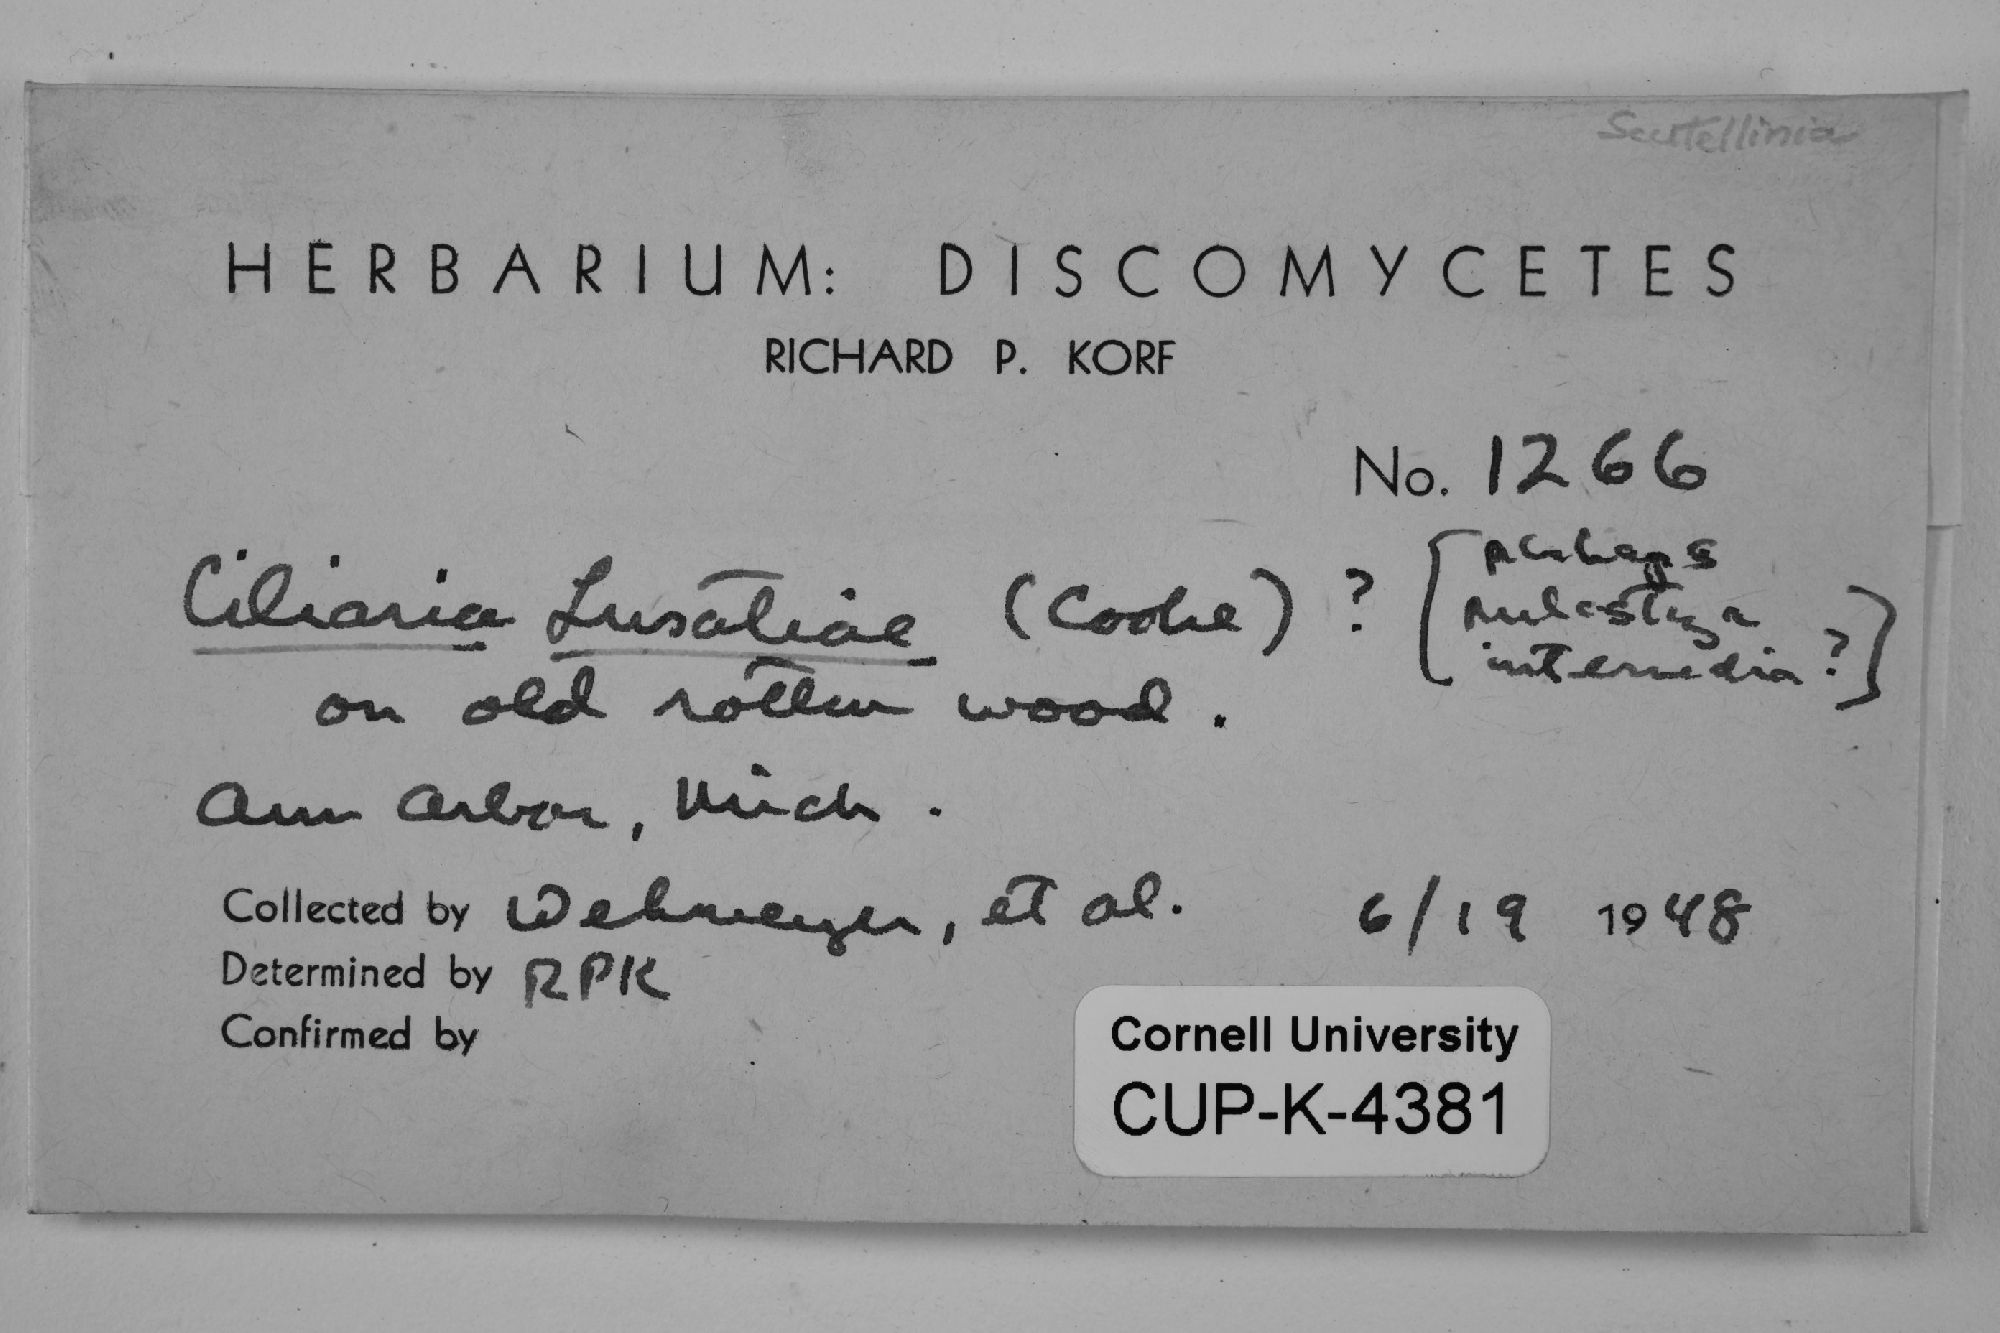 Scutellinia
HERBARIUM: DISCOMYCETES
RICHARD P. KORF
No. 1266
Ciliaria Lusatiae (Cooke) ? [perhaps
intermedia?]
on old rotten wood.
Ann Arbor, Mich.
Collected by Wehmeyer, et al. 6/19 1948
Determined by RPK
Confirmed by
Cornell University
CUP-K-4381